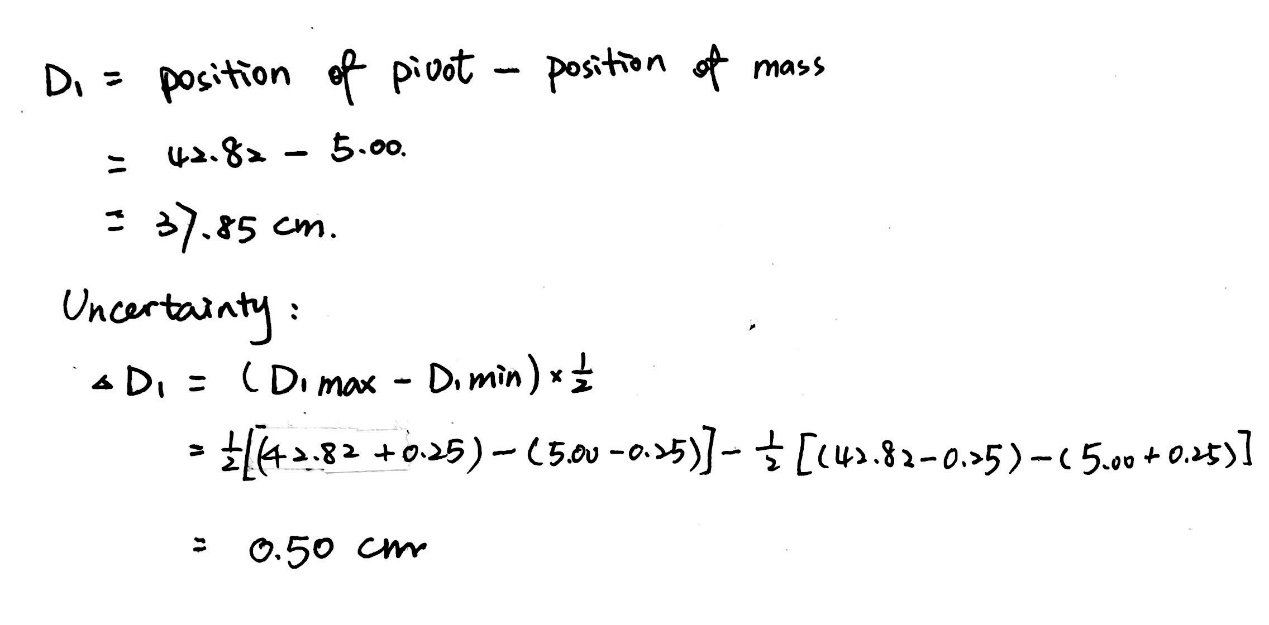 D₁ = position of pivot − position of mass
= 42.82 − 5.00.
= 37.85 cm.
Uncertainty :
△ D₁ = ( D₁ max − D₁ min ) × 1/2
= 1/2 [(42.82 + 0.25) − (5.00 − 0.25)] − 1/2 [(42.82 − 0.25) − (5.00 + 0.25)]
= 0.50 cm